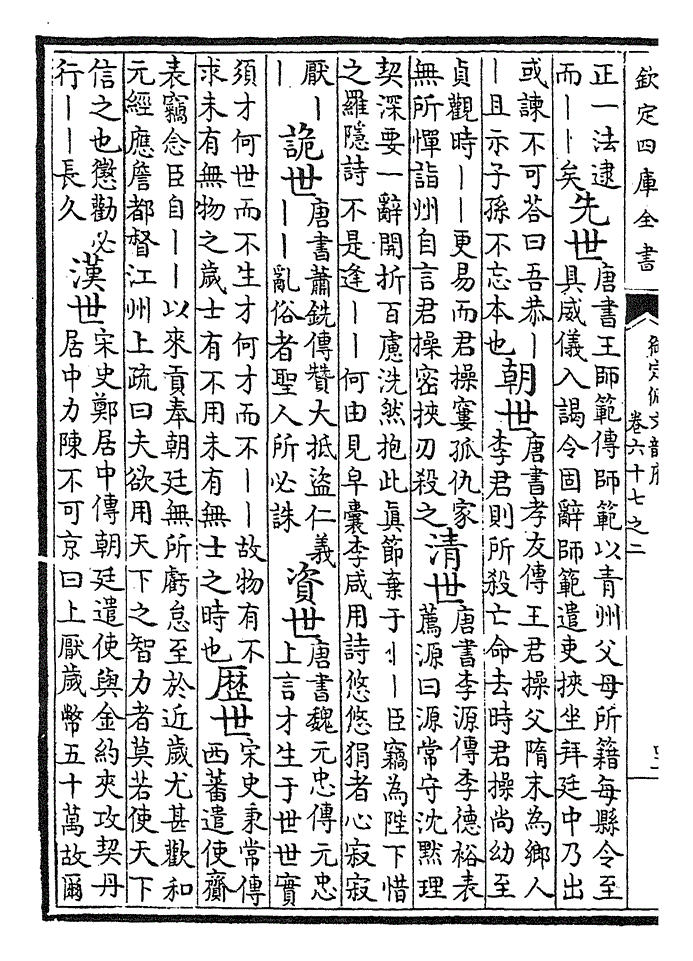 欽定四庫全書
御定佩文韻府
卷六十七之二
正一法逮
而丨丨矣
先世
唐書王師範傳師範以青州父母所籍每縣令至
具威儀入謁令固辭師範遣吏挾坐拜廷中乃出
或諫不可答曰吾恭丨
丨且示子孫不忘本也
朝世
唐書孝友傳王君操父隋末為鄉人
李君則所殺亡命去時君操尚幼至
貞觀時丨丨更易而君操窶孤仇家
無所憚詣州自言君操密挾刃殺之
清世
唐書李源傳李德裕表
薦源曰源常守沈默理
契深要一辭開折百慮洗然抱此真節棄于丨丨臣竊為陛下惜
之羅隱詩不是逢丨丨何由見皁囊李咸用詩悠悠狷者心寂寂
厭丨
丨
詭世
唐書蕭銑傳贊大抵盜仁義
丨丨亂俗者聖人所必誅
資世
唐書魏元忠傳元忠
上言才生于世世實
須才何世而不生才何才而不丨丨故物有不
求未有無物之歲士有不用未有無士之時也
歴世
宋史秉常傳
西蕃遣使齎
表竊念臣自丨丨以來貢奉朝廷無所虧怠至於近歲尤甚歡和
元經應詹都督江州上疏曰夫欲用天下之智力者莫若使天下
信之也懲勸必
行丨丨長久
漢世
宋史鄭居中傳朝廷遣使與金約夾攻契丹
居中力陳不可京曰上厭歲幣五十萬故爾